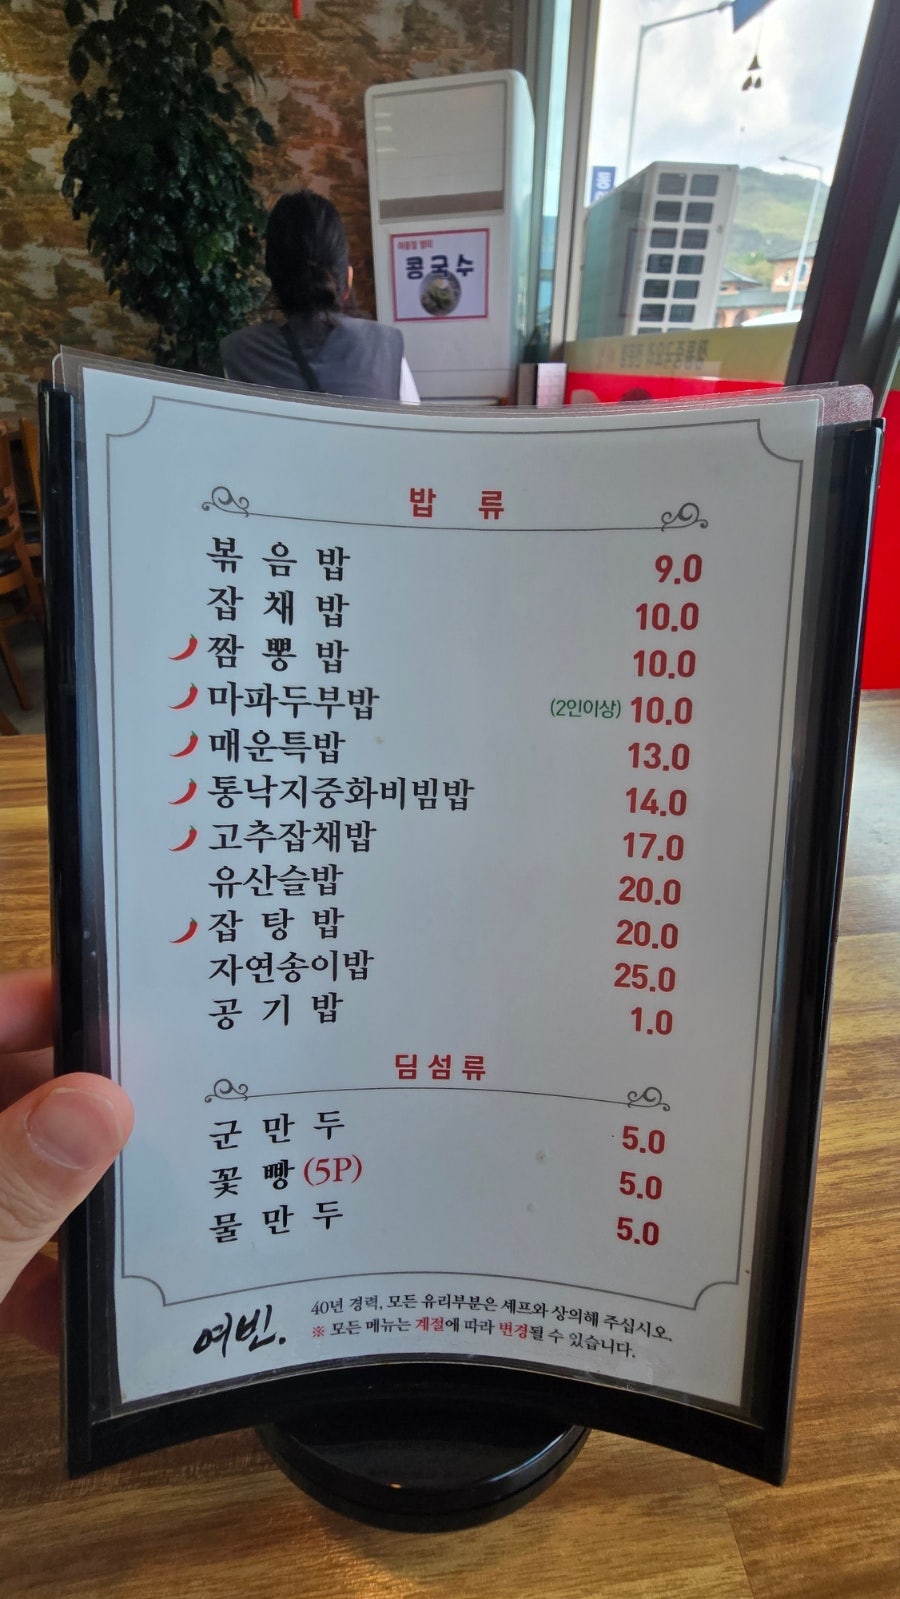 여름철 별미
콩국수
밥 류
볶 음 밥 9.0
잡 채 밥 10.0
짬 뽕 밥 10.0
마파두부밥 (2인이상) 10.0
매운특밥 13.0
통낙지중화비빔밥 14.0
고추잡채밥 17.0
유산슬밥 20.0
잡 탕 밥 20.0
자연송이밥 25.0
공 기 밥 1.0
딤섬류
군 만 두 5.0
꽃 빵 (5P) 5.0
물 만 두 5.0
여빈.
40년 경력, 모든 유리부분은 셰프와 상의해 주십시오.
※ 모든 메뉴는 계절에 따라 변경될 수 있습니다.